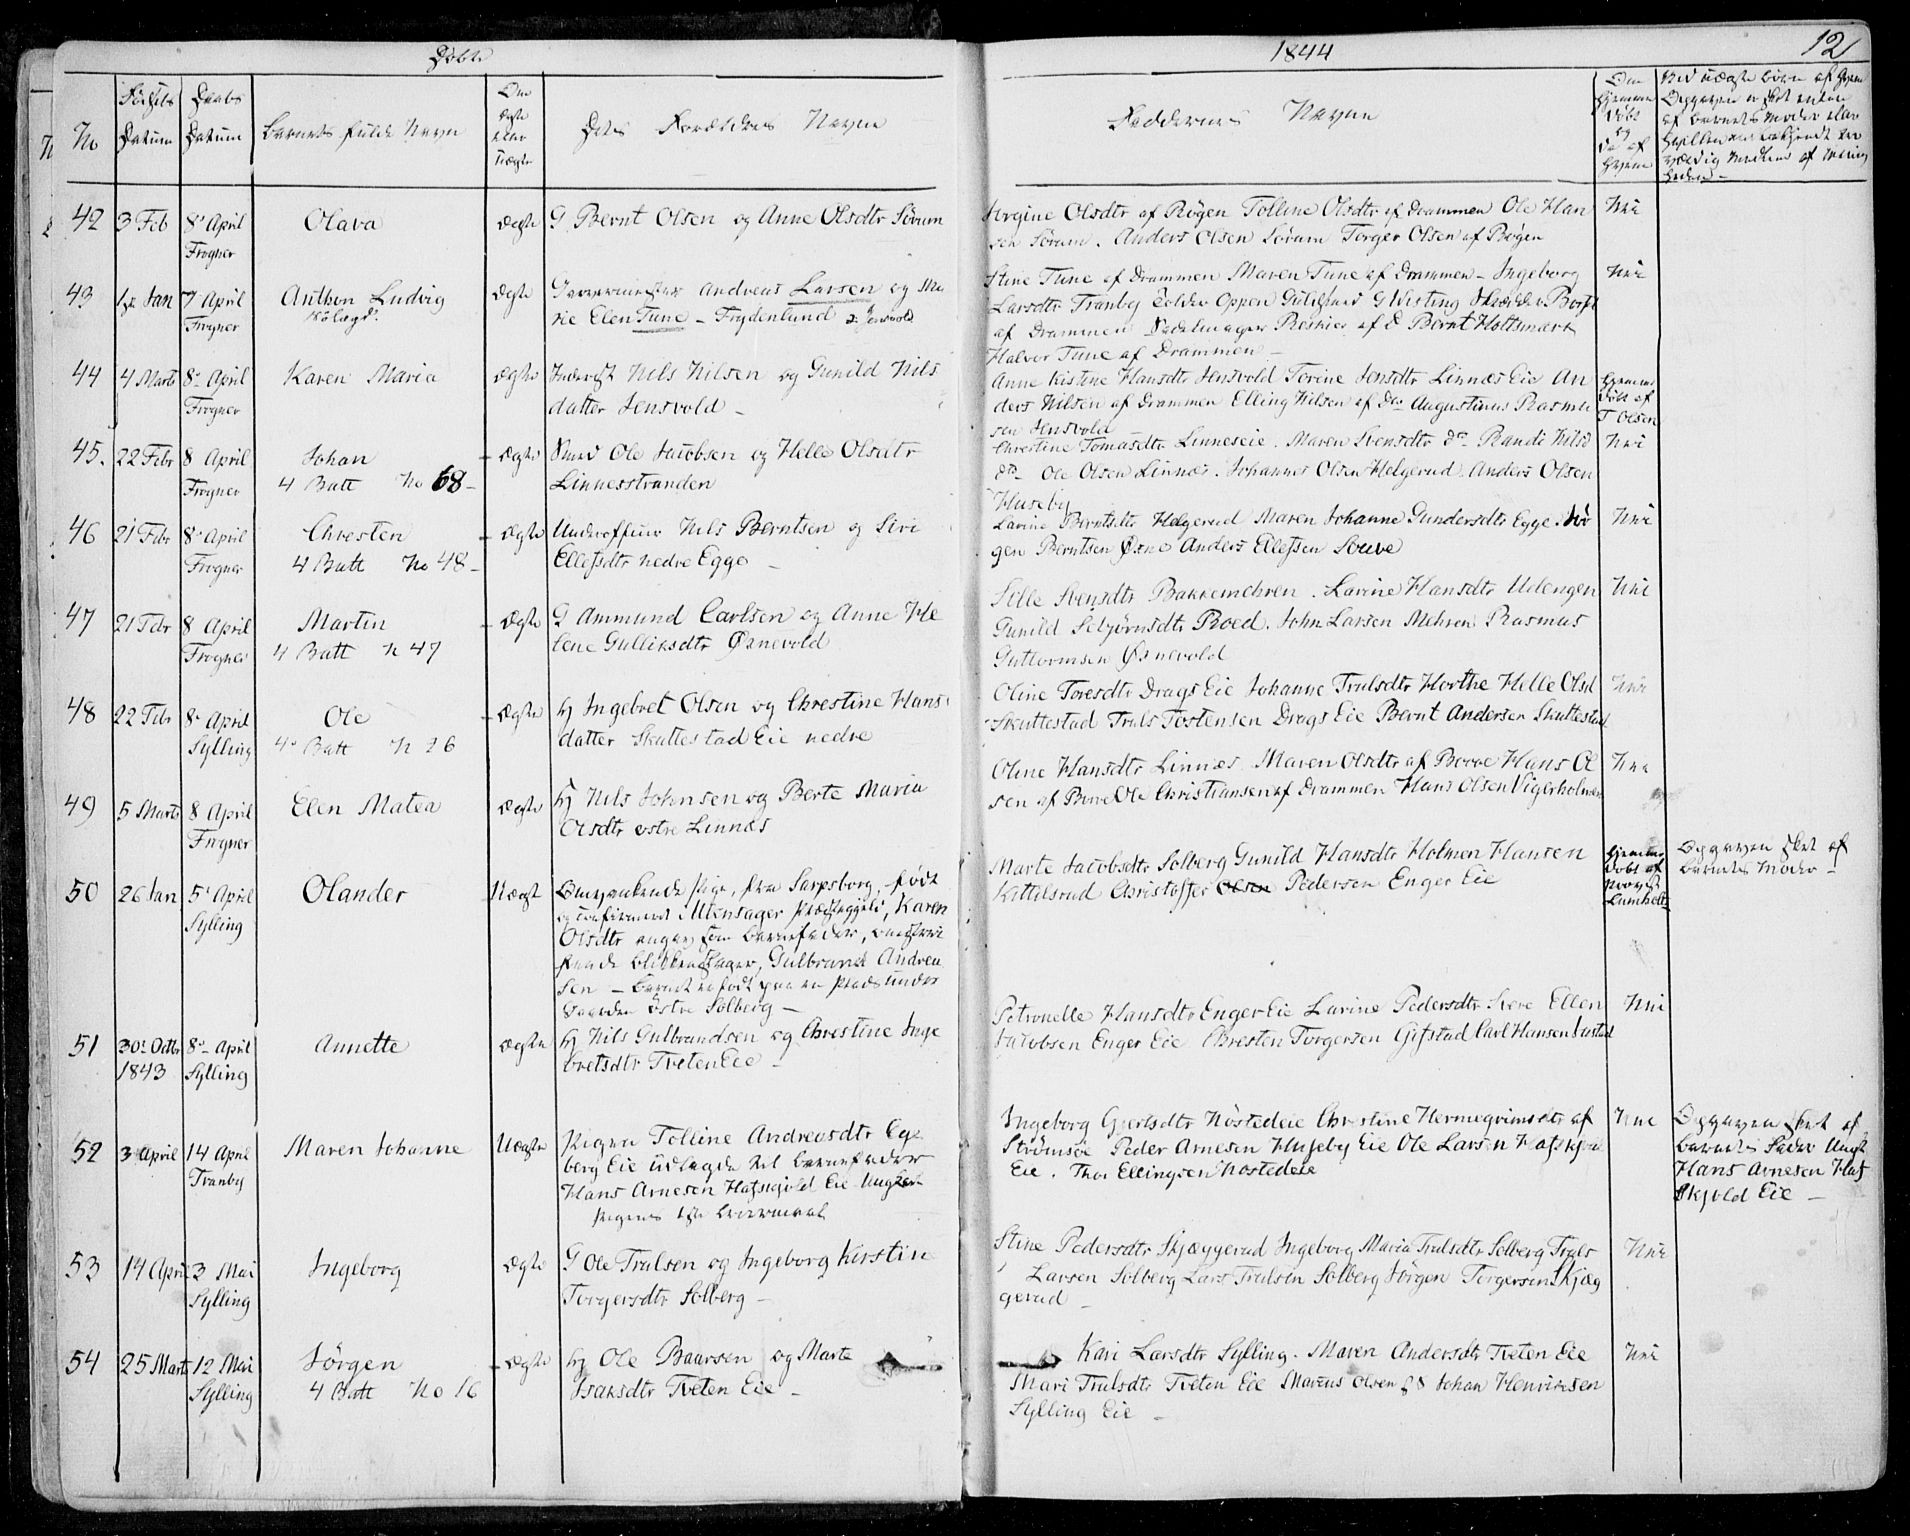 Døbte 1844 12
No
Fødsels Datum
Daabs Datum
Barnets fulde Navn
Om ægte eller uægte
Dets Forældres Navne
Faddernes Navne
Om hjemme døbt og da af hvem
42 3 Feb 8 April Frogner Olava ægte G Bernt Olsen og Anne Olsdtr Sørum
Jørgine Olsdtr af Røgen Tolline Olsdtr af Drammen Ole Han
sen Sørum. Anders Olsen Sørum Torger Olsen af Røgen Nei
43 Jan 7 April Frogner Anthon Ludvig ægte Garvermester Andreas Larsen og Ma
rie Elen Tune – Frydenlund
Stine Tune af Drammen Maren Tune af Drammen – Ingeborg Nei
Larsdtr Tranby
af Drammen Sadelmager af D Bernt Holtsmark
Halvor Tune af Drammen –
44 4 Marts 8 April Frogner Karen Maria ægte Inderst Nils Nilsen og Gunild Nils
datter Jensvold –
Anne Kistine Hansdtr Jensvold Torine Jensdtr Linnæs Eie An
ders Nilsen af Drammen Elling Nilsen af Do Augustinus Rasmu
sen Jensvold
Hjemme døbt af T Olsen
45. 22 Febr 8 April Frogner Johan ægte Smed Ole Jacobsen og Helle Olsdtr
4 Batt No 68 – Linnesstranden
Chrestine Tomasdtr Linneseie. Maren Svensdtr do Randi Nilsd Nei
do Ole Olsen Linnæs. Johannes Olsen Helgerud Anders Olsen
Huseby
46 21 Febr 8 April Frogner Chresten ægte Underofficer Nils Berntsen og Siri
4 Batt No 48 – Ellefsdtr nedre Egge –
Larine Berntsdtr Helgerud Maren Johanne Gundersdtr Egge. Jør Nei
gen Berntsen Øsne Anders Ellefsen
47 21 Febr 8 April Frogner Martin ægte G Ammund Carlsen og Anne He
4 Batt N 47 lene Gulliksdtr Øsnevold
Sille Svensdtr Bakkemehren. Larine Hansdtr Utengen Nei
Gunild Sebjørnsdtr Roed. John Larsen Mehren Rasmus
Guttormsen Øsnevold
48 22 Febr 8 April Sylling Ole ægte Hj Ingebret Olsen og Chrestine Hans
4 Batt N 26 datter Skuttestad Eie nedre
Oline Toresdtr Drags Eie Johanne Trulsdtr Horthe Helle Olsd Nei
Skuttestad Truls Tostensen Drags Eie Bernt Andersen Skuttestad
49 5 Marts 8 April Frogner Elen Matea ægte Hj Nils Johnsen og Berte Maria
Olsdtr østre Linnæs
Oline Hansdtr Linnæs. Maren Olsdtr af Borre Hans Ol Nei
sen af Borre Ole Christiansen af Drammen Hans Olsen Vigerholmen
50 26 Jan 5 April Sylling Olander Uægte Omvankende Pige, fra Sarpsborg, født
og confirmeret i Præstegjeld, Karen
Olsdtr angav som Barnefader, omstrei
fende Blikkenslager, Gulbrand Andrea
sen – Barnet er født paa en Plads under
Gaarden østre Solberg –
Marte Jacobsdtr Solberg Gunild Hansdtr Holmen Hansen
Kittelsrud Christoffer Olsen Pedersen Enger Eie
Hjemme døbt af
Opgaven skeet af
Barnets Moder –
51 30 Octbr 1843 8 April Sylling Annette ægte Hj Nils Gulbrandsen og Chrestine Inge
bretsdtr Tveten Eie –
Petronelle Hansdtr Enger Eie Larine Pedersdtr Ellen Nei
Jacobsen Enger Eie Chresten Torgersen Gifstad Carl Hansen
52 3 April 14 April Tranby Maren Johanne Uægte Pigen Tolline Andreasdtr Ege
berg Eie udlagde til Barnefader
Hans Arnesen Hafskjold Eie Ungkarl
Pigens 1ste Leiermaal
Ingeborg Gjertsdtr Nøstedeie Christine Hermegrimsdtr af Nei
Strømsøe Peder Arnesen Huseby Eie Ole Larsen Hafskjold
Eie. Thor Ellingsen Nøstedeie
Opgaven skeet af
Barnets Fader Ungk
Hans Arnesen Haf
skjold Eie –
53 14 April 3 Mai Sylling Ingeborg ægte G Ole Trulsen og Ingeborg Kirstin
Torgersdtr Solberg –
Stine Pedersdtr Skjæggerud Ingeborg Maria Trulsdtr Solberg Truls Nei
Larsen Solberg Lars Trulsen Solberg Jørgen Torgersen Skjæg
gerud –
54 25 Marts 12 Mai Sylling Jørgen ægte Hj Ole Paarsen og Marte
4 Batt No 16 Isaksdtr Tveten Eie –
Kari Larsdtr Sylling. Maren Andersdtr Tveten Eie Nei
Mari Trulsdtr Tveten Eie Marcus Olsen Johan Henriksen
Sylling Eie –